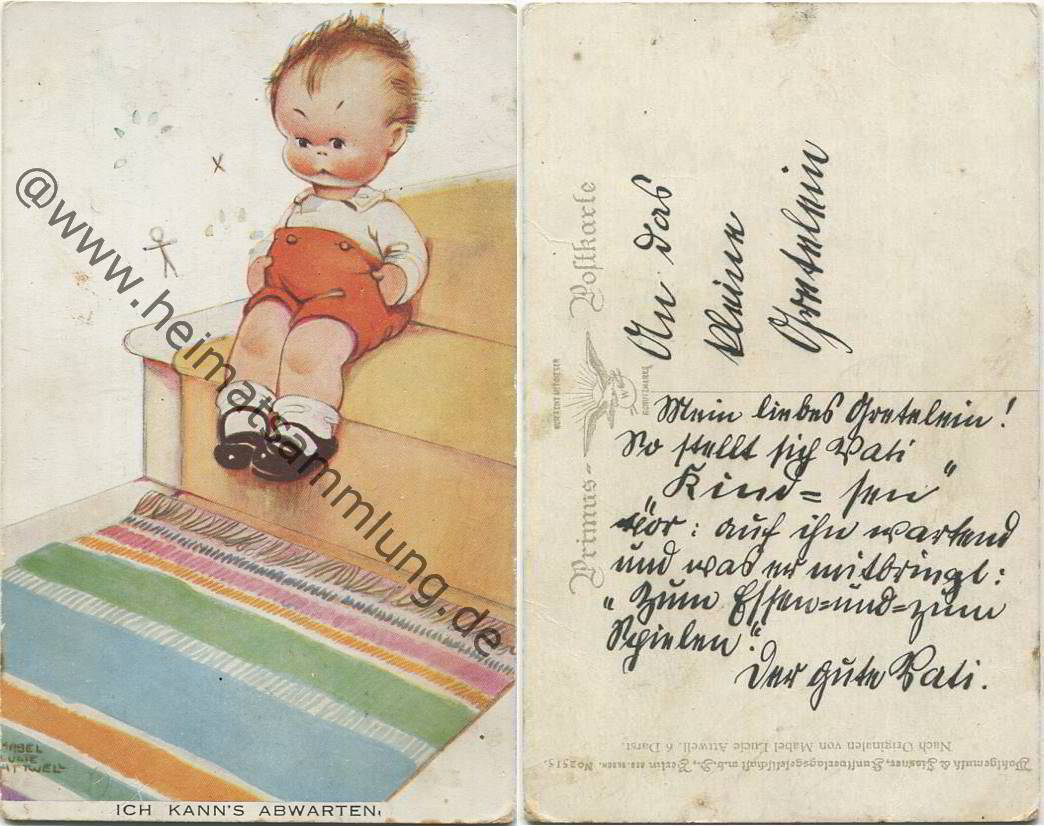 @www.heimatsammlung.de
MABEL
LUCIE
ATTWELL
ICH KANN'S ABWARTEN.
Primus-Postkarte
An das
kleine
Gretelein
Mein liebes Gretelein!
So stellt sich Vati
„Kind=sen"
vor: auf ihn wartend
und was er mitbringt:
"Zum Essen=und=zum
Spielen".
Der gute Vati.
Nach Originalen von Mabel Lucie Attwell. 6 Darst.
Wohlgemuth & Lissner, Kunstverlagsgesellschaft m.b.H., Berlin No 2515.